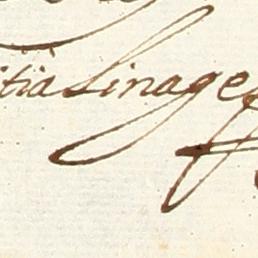 itia Linage